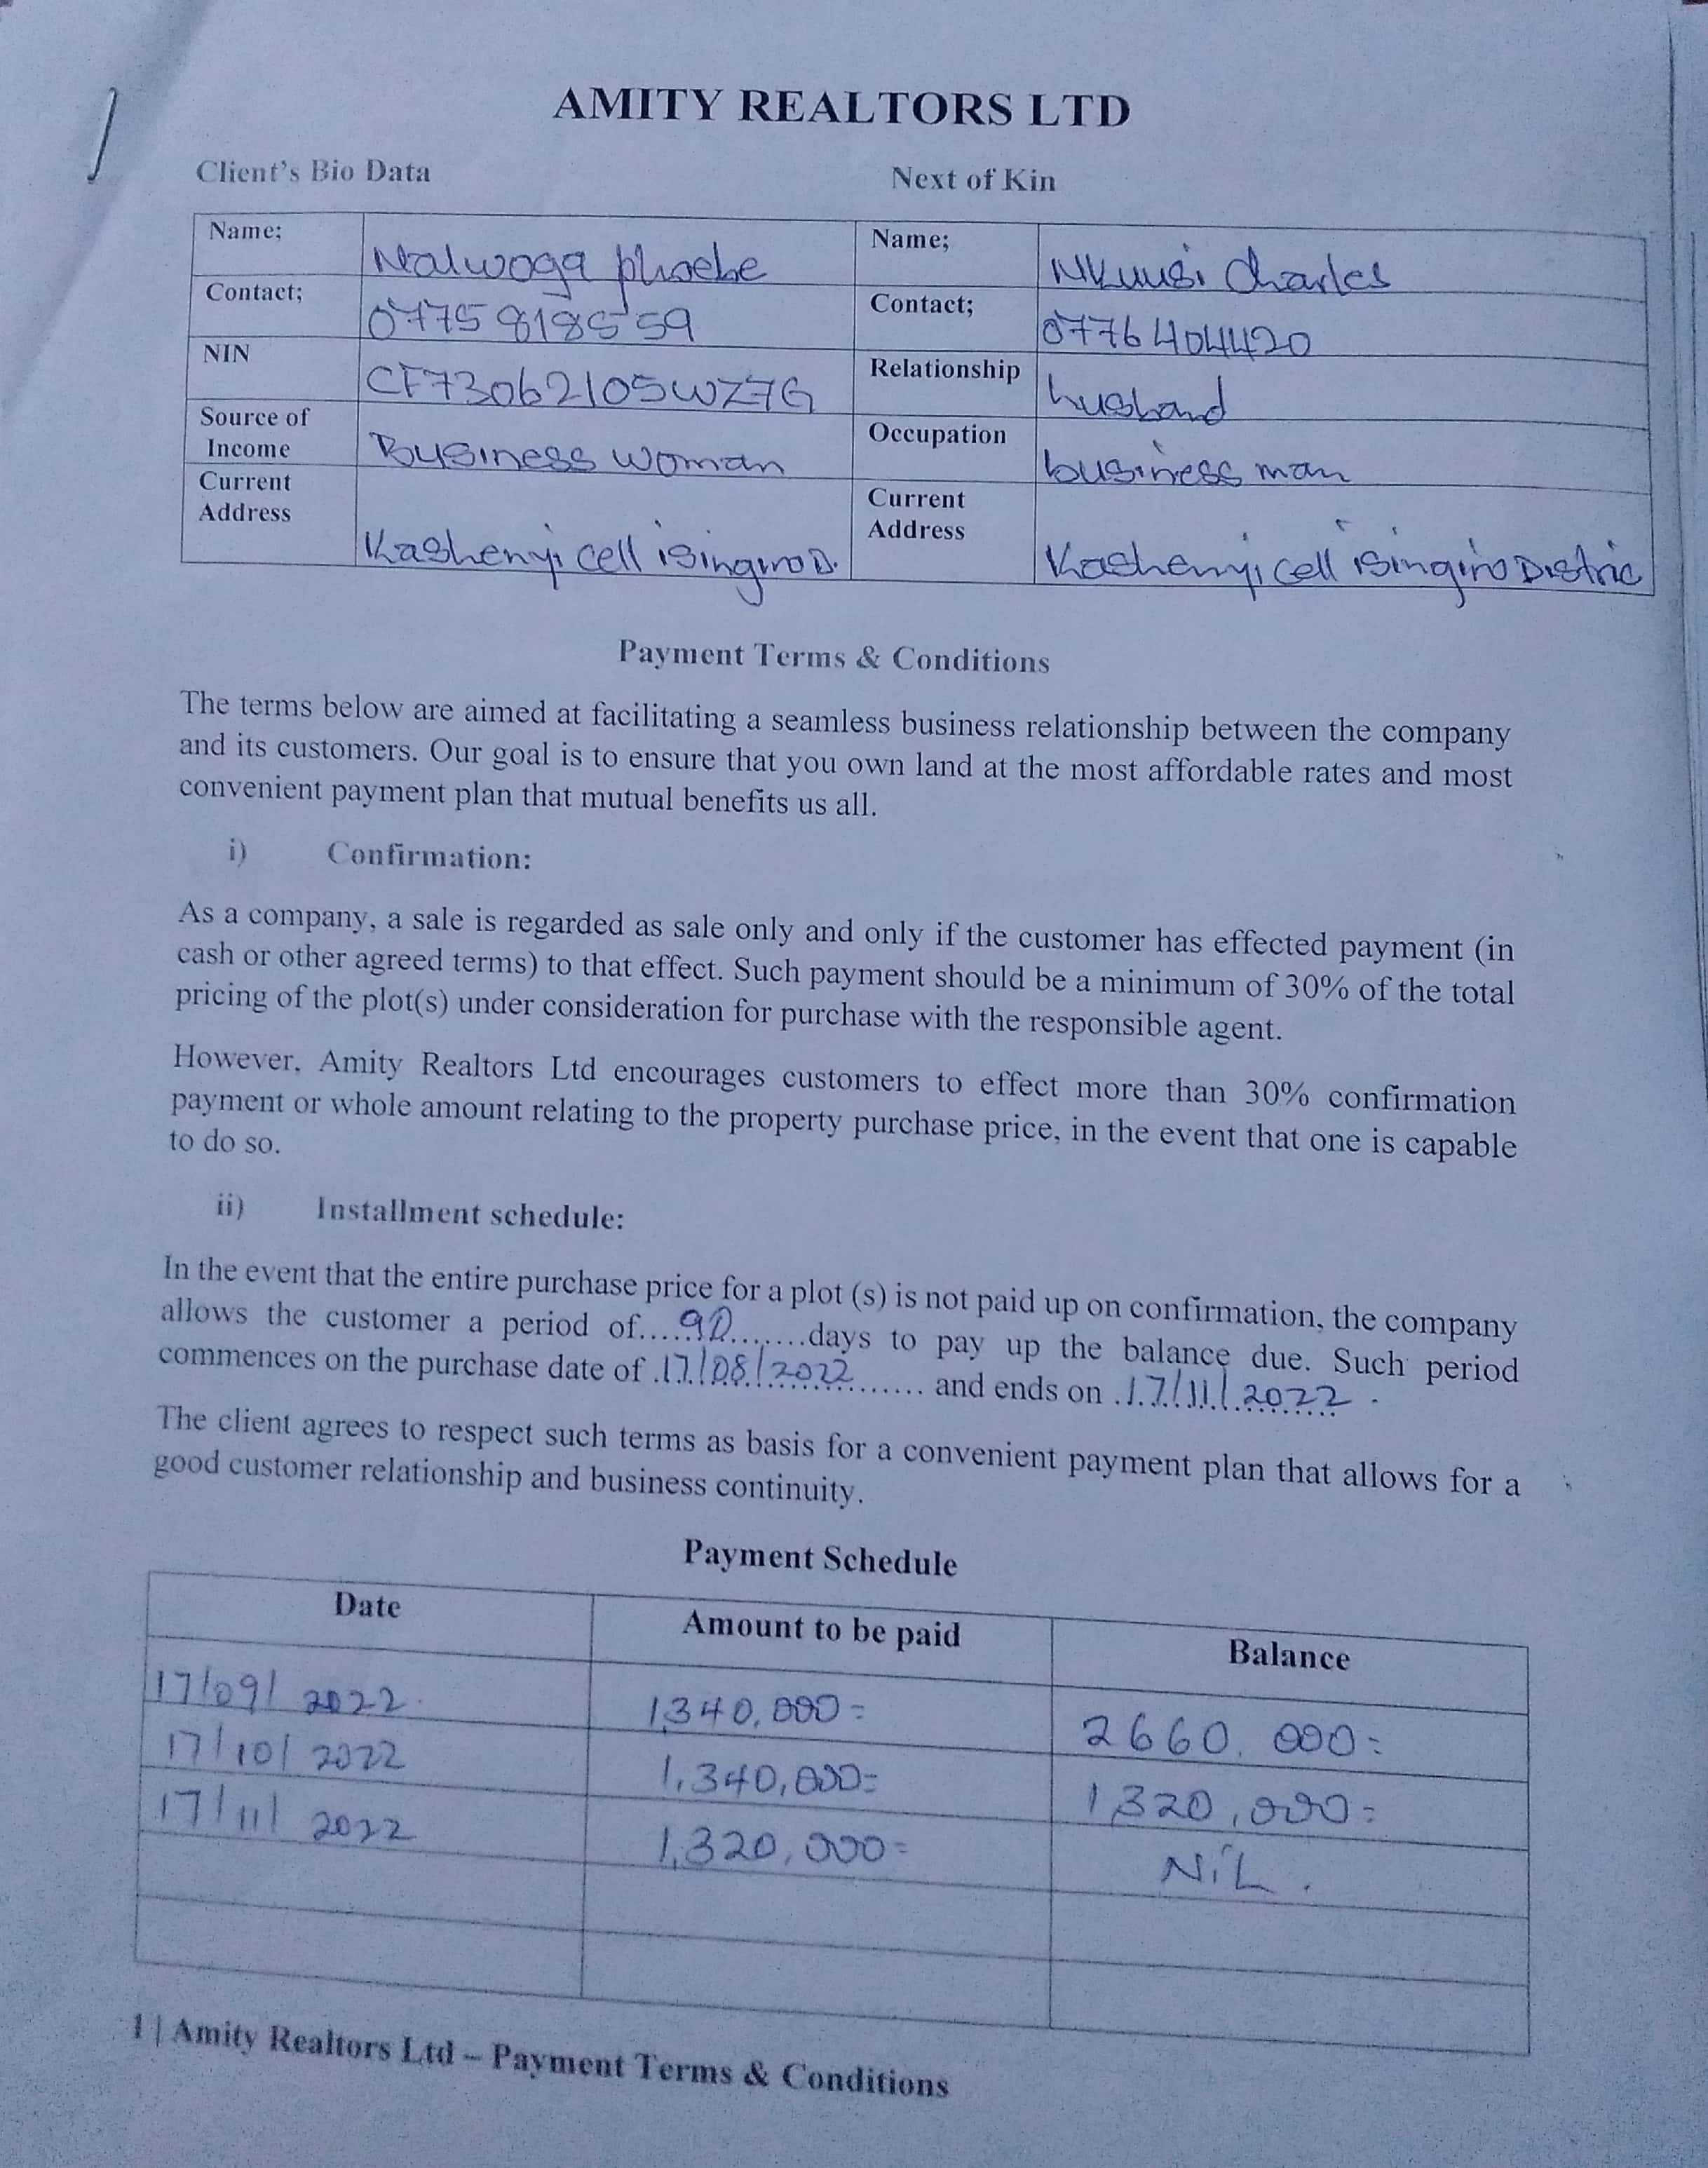 AMITY REALTORS LTD
Client's Bio Data Next of Kin
Name; Nalwoga phoebe Name; Nkuusi Charles
Contact; 0775818559 Contact; 0776404420
NIN CF73062105WZ7G Relationship husband
Source of Income Business woman Occupation business man
Current Address Kashenyi cell isingiro D. Current Address Kashenyi cell isingiro Distric
Payment Terms & Conditions
The terms below are aimed at facilitating a seamless business relationship between the company
and its customers. Our goal is to ensure that you own land at the most affordable rates and most
convenient payment plan that mutual benefits us all.
i) Confirmation:
As a company, a sale is regarded as sale only and only if the customer has effected payment (in
cash or other agreed terms) to that effect. Such payment should be a minimum of 30% of the total
pricing of the plot(s) under consideration for purchase with the responsible agent.
However, Amity Realtors Ltd encourages customers to effect more than 30% confirmation
payment or whole amount relating to the property purchase price, in the event that one is capable
to do so.
ii) Installment schedule:
In the event that the entire purchase price for a plot (s) is not paid up on confirmation, the company
allows the customer a period of.....90.......days to pay up the balance due. Such period
commences on the purchase date of .17/08/2022....... and ends on .17/11/2022.
The client agrees to respect such terms as basis for a convenient payment plan that allows for a
good customer relationship and business continuity.
Payment Schedule
Date Amount to be paid Balance
17/09/2022 1340,000= 2660.000=
17/10/2022 1,340,000= 1320,000=
17/11/2022 1,320,000= NiL.
1 | Amity Realtors Ltd – Payment Terms & Conditions